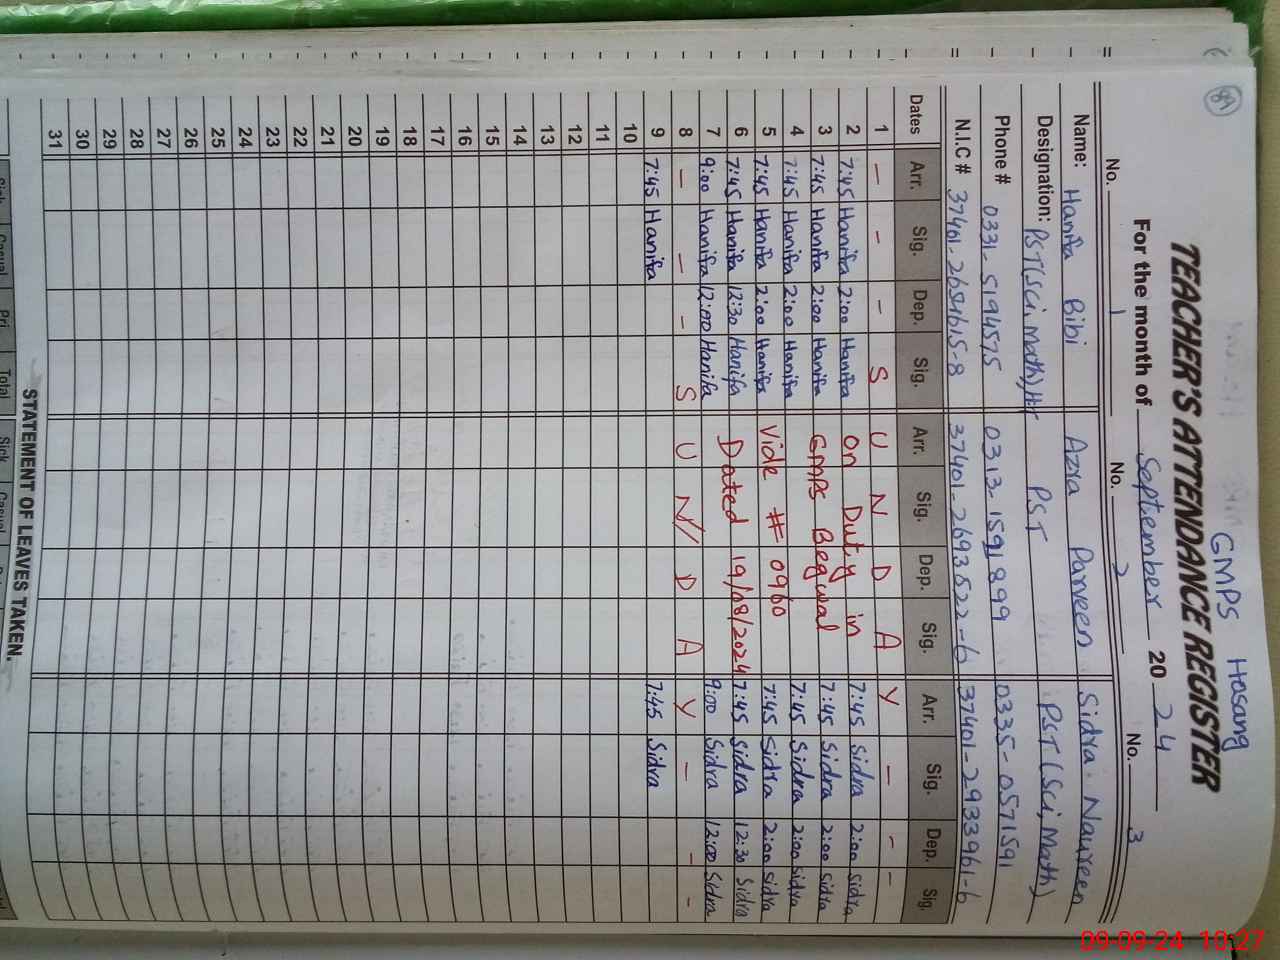 89
GMPS Hasang
TEACHER'S ATTENDANCE REGISTER
For the month of September 20 24
No. 1 No. 2 No. 3
Name: Hanifa Bibi Azra Parveen Sidra Naureen
Designation: PST(Sci, Math)/Hr PST PST (Sci, Math)
Phone # 0331-5194575 0313-1591899 0335-0571591
N.I.C # 37401-2651615-8 37401-2693522-6 37401-2933961-6
Dates Arr. Sig. Dep. Sig. Arr. Sig. Dep. Sig. Arr. Sig. Dep. Sig.
1 - - - S U N D A Y - - -
2 7:45 Hanifa 2:00 Hanifa On Duty in 7:45 Sidra 2:00 Sidra
3 7:45 Hanifa 2:00 Hanifa GMPS Begwal 7:45 Sidra 2:00 Sidra
4 7:45 Hanifa 2:00 Hanifa 7:45 Sidra 2:00 Sidra
5 7:45 Hanifa 2:00 Hanifa Vide # 0960 7:45 Sidra 2:00 Sidra
6 7:45 Hanifa 12:30 Hanifa Dated 19/08/2024 7:45 Sidra 12:30 Sidra
7 9:00 Hanifa 12:00 Hanifa 9:00 Sidra 12:00 Sidra
8 - - - S U N D A Y - - -
9 7:45 Hanifa 7:45 Sidra
10
11
12
13
14
15
16
17
18
19
20
21
22
23
24
25
26
27
28
29
30
31
STATEMENT OF LEAVES TAKEN.
Sick Casual Pri Total Sick Casual
09-09-24 10:27